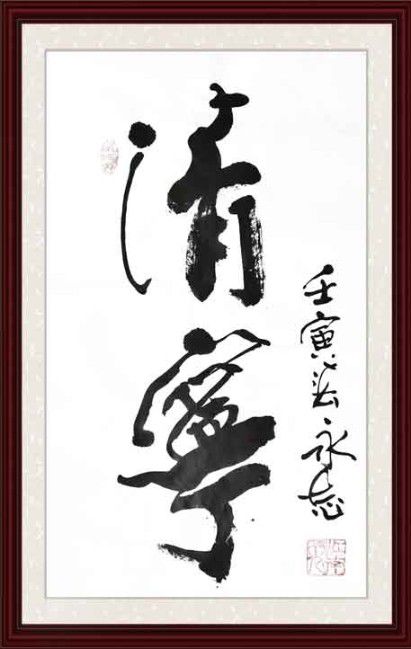 清寧
壬寅 永志